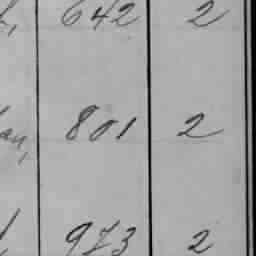 642 2
801 2
973 2